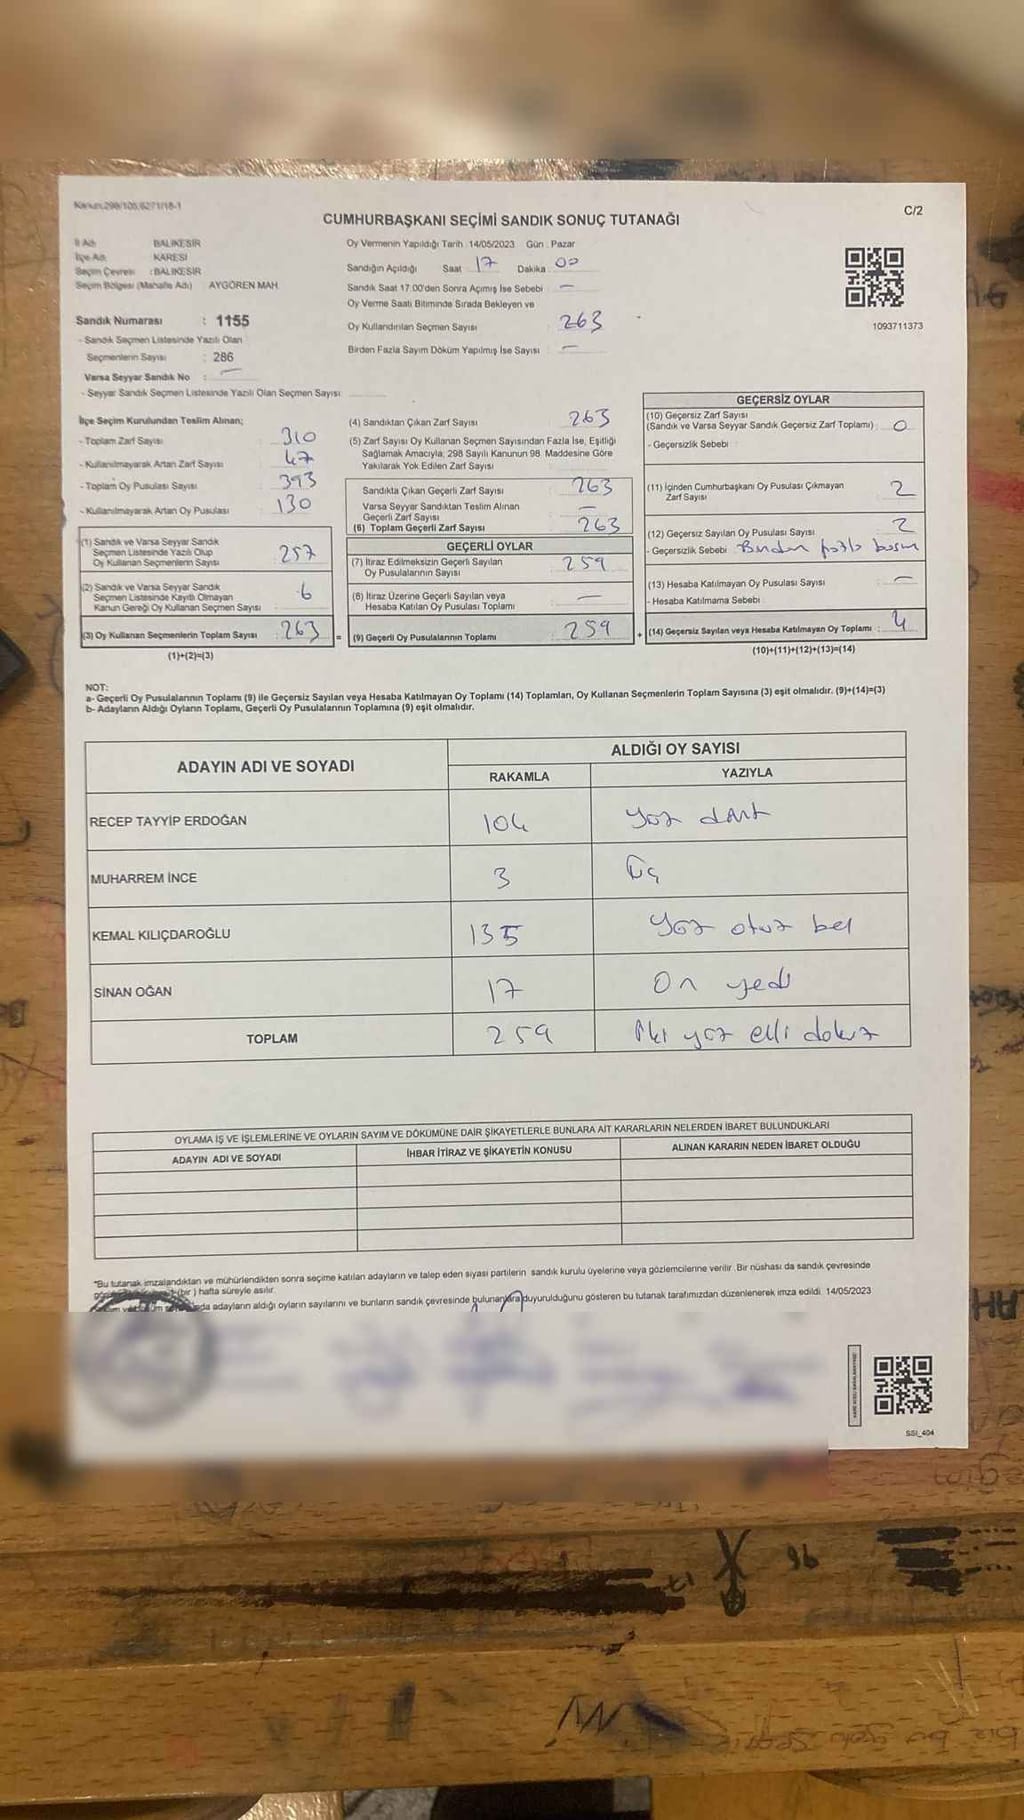 Kanun:298/105;6271/18-1
C/2
CUMHURBAŞKANI SEÇİMİ SANDIK SONUÇ TUTANAĞI
İl Adı BALIKESİR
İlçe Adı KARESİ
Seçim Çevresi : BALIKESİR
Seçim Bölgesi (Mahalle Adı) AYGÖREN MAH.
Sandık Numarası : 1155
- Sandık Seçmen Listesinde Yazılı Olan
Seçmenlerin Sayısı : 286
Varsa Seyyar Sandık No : —
- Seyyar Sandık Seçmen Listesinde Yazılı Olan Seçmen Sayısı
Oy Vermenin Yapıldığı Tarih : 14/05/2023 Gün : Pazar
Sandığın Açıldığı Saat 17 Dakika 00
Sandık Saat 17.00'den Sonra Açımış İse Sebebi —
Oy Verme Saati Bitiminde Sırada Bekleyen ve
Oy Kullandırılan Seçmen Sayısı 263
Birden Fazla Sayım Döküm Yapılmış İse Sayısı —
1093711373
İlçe Seçim Kurulundan Teslim Alınan;
- Toplam Zarf Sayısı 310
- Kullanılmayarak Artan Zarf Sayısı 47
- Toplam Oy Pusulası Sayısı 393
- Kullanılmayarak Artan Oy Pusulası 130
(1) Sandık ve Varsa Seyyar Sandık
Seçmen Listesinde Yazılı Olup
Oy Kullanan Seçmenlerin Sayısı 257
(2) Sandık ve Varsa Seyyar Sandık
Seçmen Listesinde Kayıtlı Olmayan
Kanun Gereği Oy Kullanan Seçmen Sayısı 6
(3) Oy Kullanan Seçmenlerin Toplam Sayısı : 263 =
(1)+(2)=(3)
(4) Sandıktan Çıkan Zarf Sayısı 263
(5) Zarf Sayısı Oy Kullanan Seçmen Sayısından Fazla İse, Eşitliği
Sağlamak Amacıyla; 298 Sayılı Kanunun 98. Maddesine Göre
Yakılarak Yok Edilen Zarf Sayısı
Sandıkta Çıkan Geçerli Zarf Sayısı 263
Varsa Seyyar Sandıktan Teslim Alınan
Geçerli Zarf Sayısı —
(6) Toplam Geçerli Zarf Sayısı 263
GEÇERLİ OYLAR
(7) İtiraz Edilmeksizin Geçerli Sayılan
Oy Pusulalarının Sayısı 259
(8) İtiraz Üzerine Geçerli Sayılan veya
Hesaba Katılan Oy Pusulası Toplamı —
(9) Geçerli Oy Pusulalarının Toplamı 259 +
GEÇERSİZ OYLAR
(10) Geçersiz Zarf Sayısı
(Sandık ve Varsa Seyyar Sandık Geçersiz Zarf Toplamı) 0
- Geçersizlik Sebebi
(11) İçinden Cumhurbaşkanı Oy Pusulası Çıkmayan
Zarf Sayısı 2
(12) Geçersiz Sayılan Oy Pusulası Sayısı 2
- Geçersizlik Sebebi Birden fazla basım
(13) Hesaba Katılmayan Oy Pusulası Sayısı —
- Hesaba Katılmama Sebebi
(14) Geçersiz Sayılan veya Hesaba Katılmayan Oy Toplamı : 4
(10)+(11)+(12)+(13)=(14)
NOT:
a- Geçerli Oy Pusulalarının Toplamı (9) ile Geçersiz Sayılan veya Hesaba Katılmayan Oy Toplamı (14) Toplamları, Oy Kullanan Seçmenlerin Toplam Sayısına (3) eşit olmalıdır. (9)+(14)=(3)
b- Adayların Aldığı Oyların Toplamı, Geçerli Oy Pusulalarının Toplamına (9) eşit olmalıdır.
ADAYIN ADI VE SOYADI ALDIĞI OY SAYISI
RAKAMLA YAZIYLA
RECEP TAYYİP ERDOĞAN 104 yüz dört
MUHARREM İNCE 3 Üç
KEMAL KILIÇDAROĞLU 135 Yüz otuz beş
SİNAN OĞAN 17 On yedi
TOPLAM 259 iki yüz elli dokuz
OYLAMA İŞ VE İŞLEMLERİNE VE OYLARIN SAYIM VE DÖKÜMÜNE DAİR ŞİKAYETLERLE BUNLARA AİT KARARLARIN NELERDEN İBARET BULUNDUKLARI
ADAYIN ADI VE SOYADI İHBAR İTİRAZ VE ŞİKAYETİN KONUSU ALINAN KARARIN NEDEN İBARET OLDUĞU
*Bu tutanak imzalandıktan ve mühürlendikten sonra seçime katılan adayların ve talep eden siyasi partilerin sandık kurulu üyelerine veya gözlemcilerine verilir. Bir nüshası da sandık çevresinde
(bir) hafta süreyle asılır.
adayların aldığı oyların sayılarını ve bunların sandık çevresinde bulunanlara duyurulduğunu gösteren bu tutanak tarafımızdan düzenlenerek imza edildi. 14/05/2023
SSI_404
96